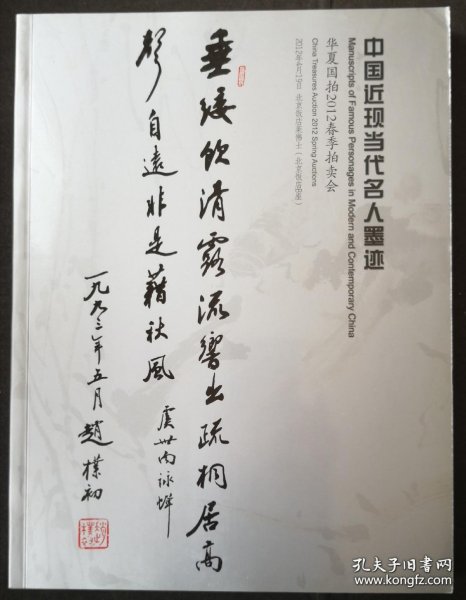 中国近现当代名人墨迹
Manuscripts of Famous Personages in Modern and Contemporary China
华夏国拍2012春季拍卖会
China Treasures Auction 2012 Spring Auctions
2012年4月19日 北京饭店莱佛士（北京饭店B座）
垂緌飲清露流響出疏桐居高
聲自遠非是藉秋風
虞世南詠蟬
年五月趙樸初
孔夫子旧书网
www.kongfz.com